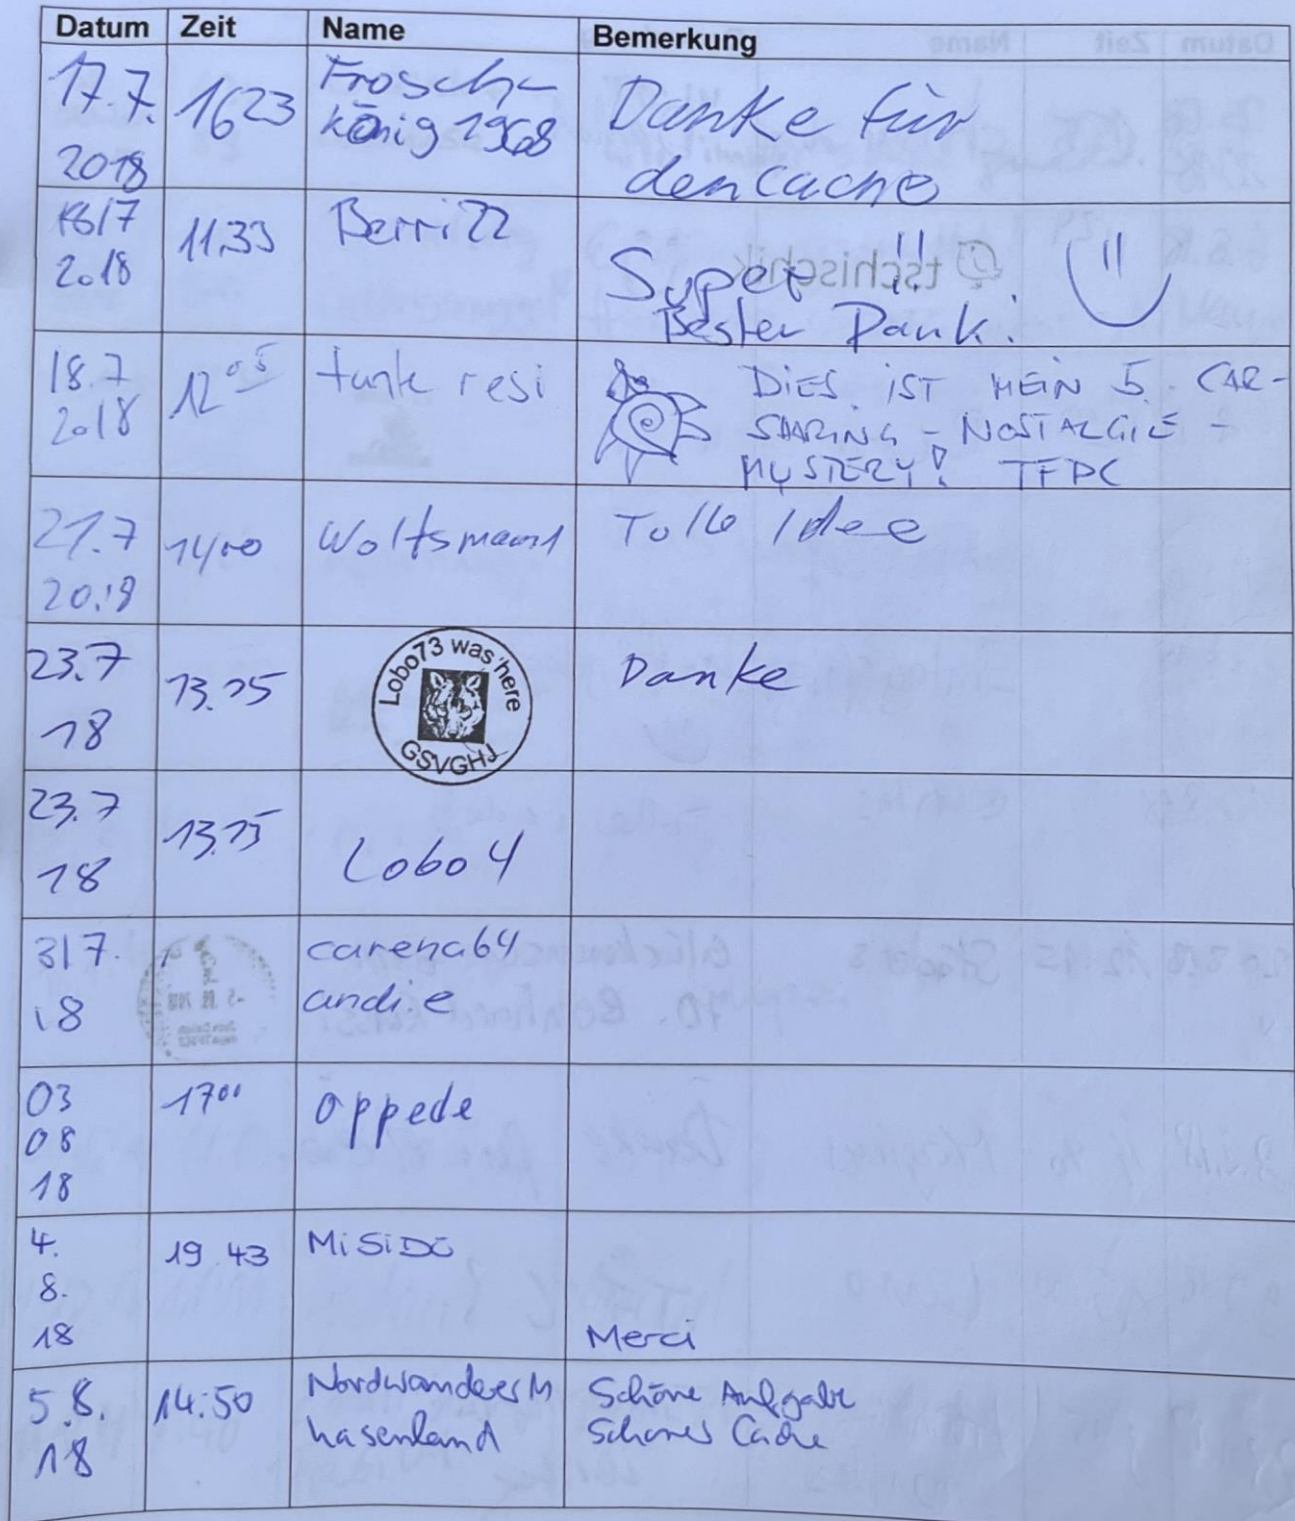 Datum Zeit Name Bemerkung
17.7. 2018 1623 Frosch-
könig1968 Danke für
den Cache
18/7 2018 11.33 Berrizz Super !!
Bester Dank!
18.7 2018 12⁰⁵ tante resi DIES IST MEIN 5. CAR-
SHARING-NOSTALGIE-
MYSTERY! TFDC
21.7 2018 14⁰⁰ Wolfsmann Tolle Idee
23.7 18 13.15 Lobo73 was here
GSVGHJ Danke
23.7 18 13.15 Lobo 4
31 7. 18 carena64
andi.e
03 08 18 17⁰⁰ oppede
4. 8. 18 19 43 MiSiDö Merci
5.8. 18 14:50 Schöne Aufgabe
hasenland Schönes Cache
tschischik